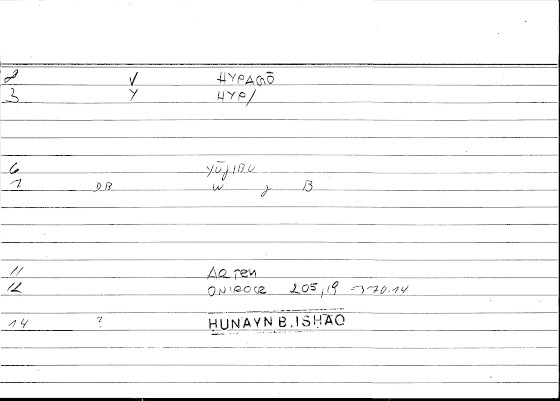 8 V HYPAGŌ
3 Y HYP/
6 YŪJIBU
7 DB W J B
11 ARTEM
12 ONIROCR 205,19 → 70.14
14 ? HUNAYN B. ISHAQ